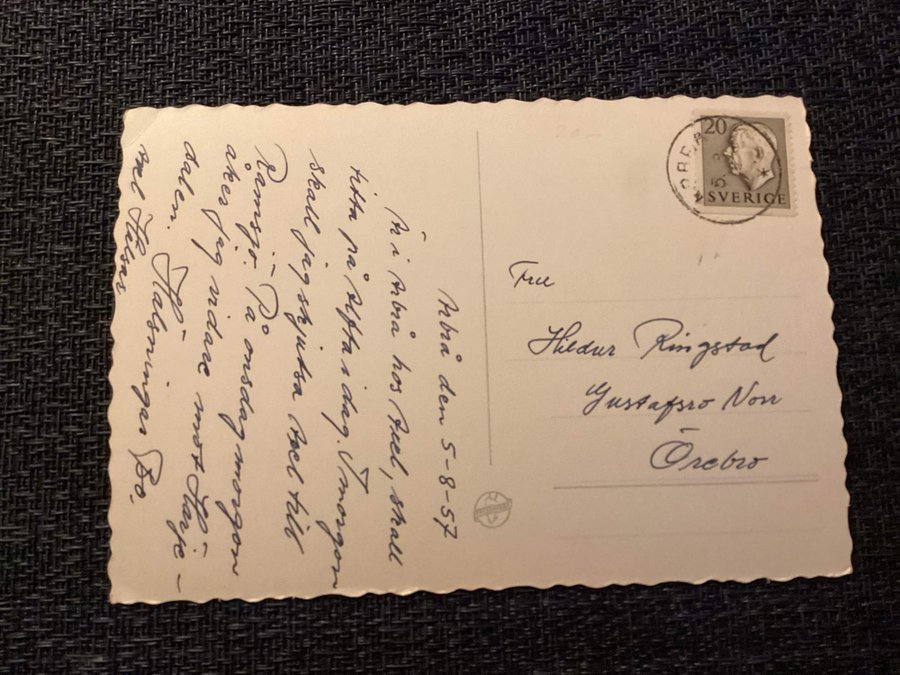 Arbrå den 5-8-57
Är i Arbrå hos Axel, skall
titta på Alfta i dag. I morgon
skall jag skjutsa Axel till
Ramsjö. På onsdag morgon
åker jag vidare mot Härje-
dalen. Hälsningar Bo.
Axel Hälsar
20
SVERIGE
ARBRÅ
Fru
Hildur Ringstad
Gustafsro Norr
Örebro